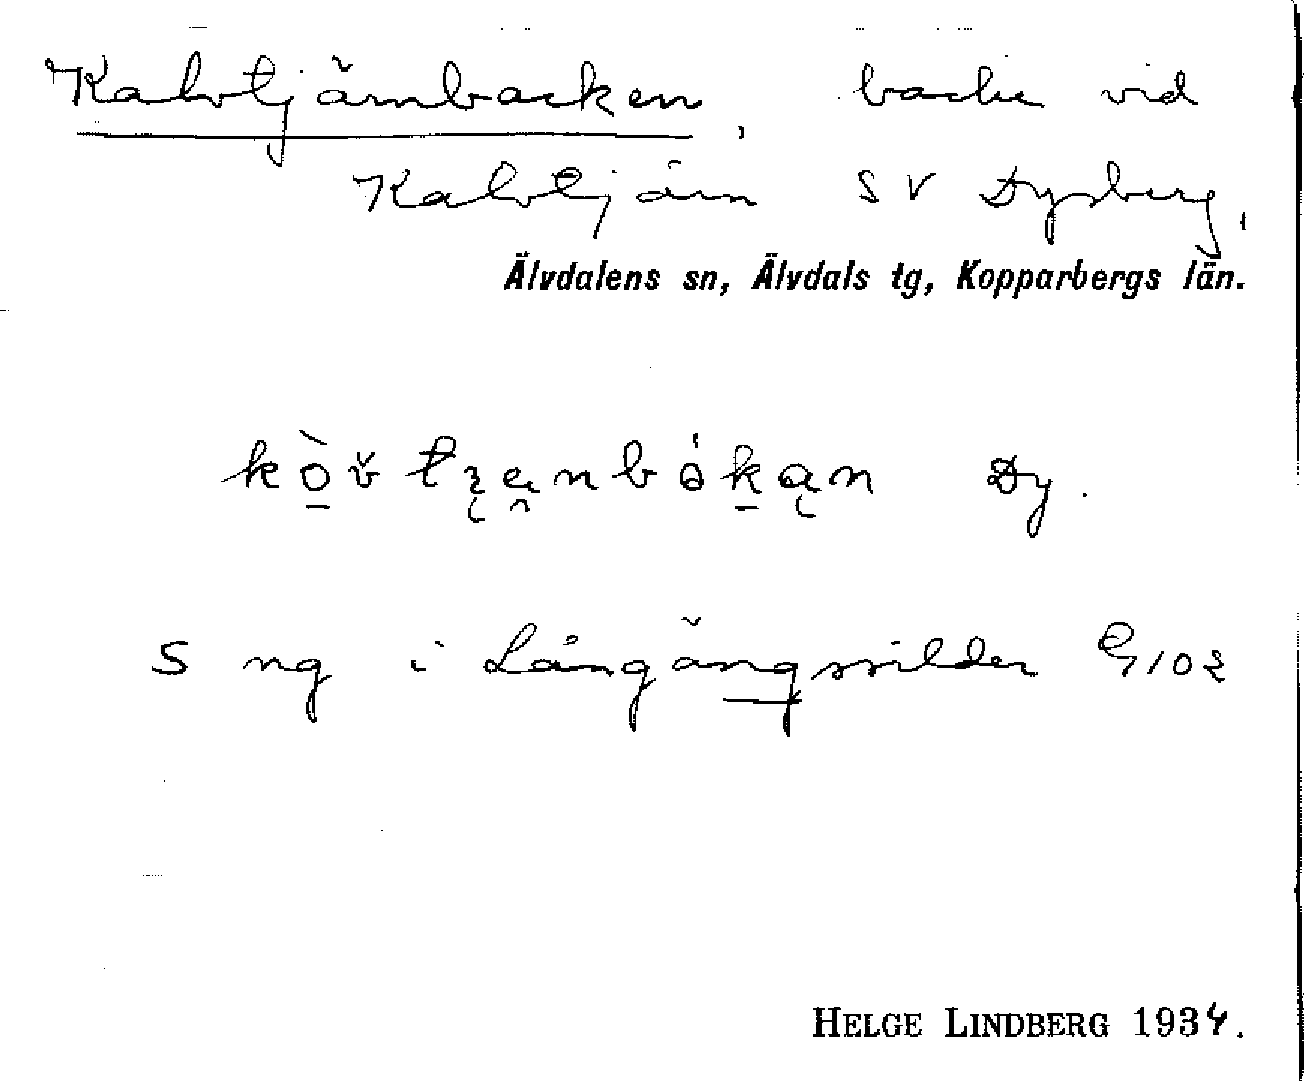 Kalvtjärnbacken, backe vid
Kalvtjärn SV Dysberg,
Älvdalens sn, Älvdals tg, Kopparbergs län.
Dy.
S ng i Långängssilder G 102
HELGE LINDBERG 1934.